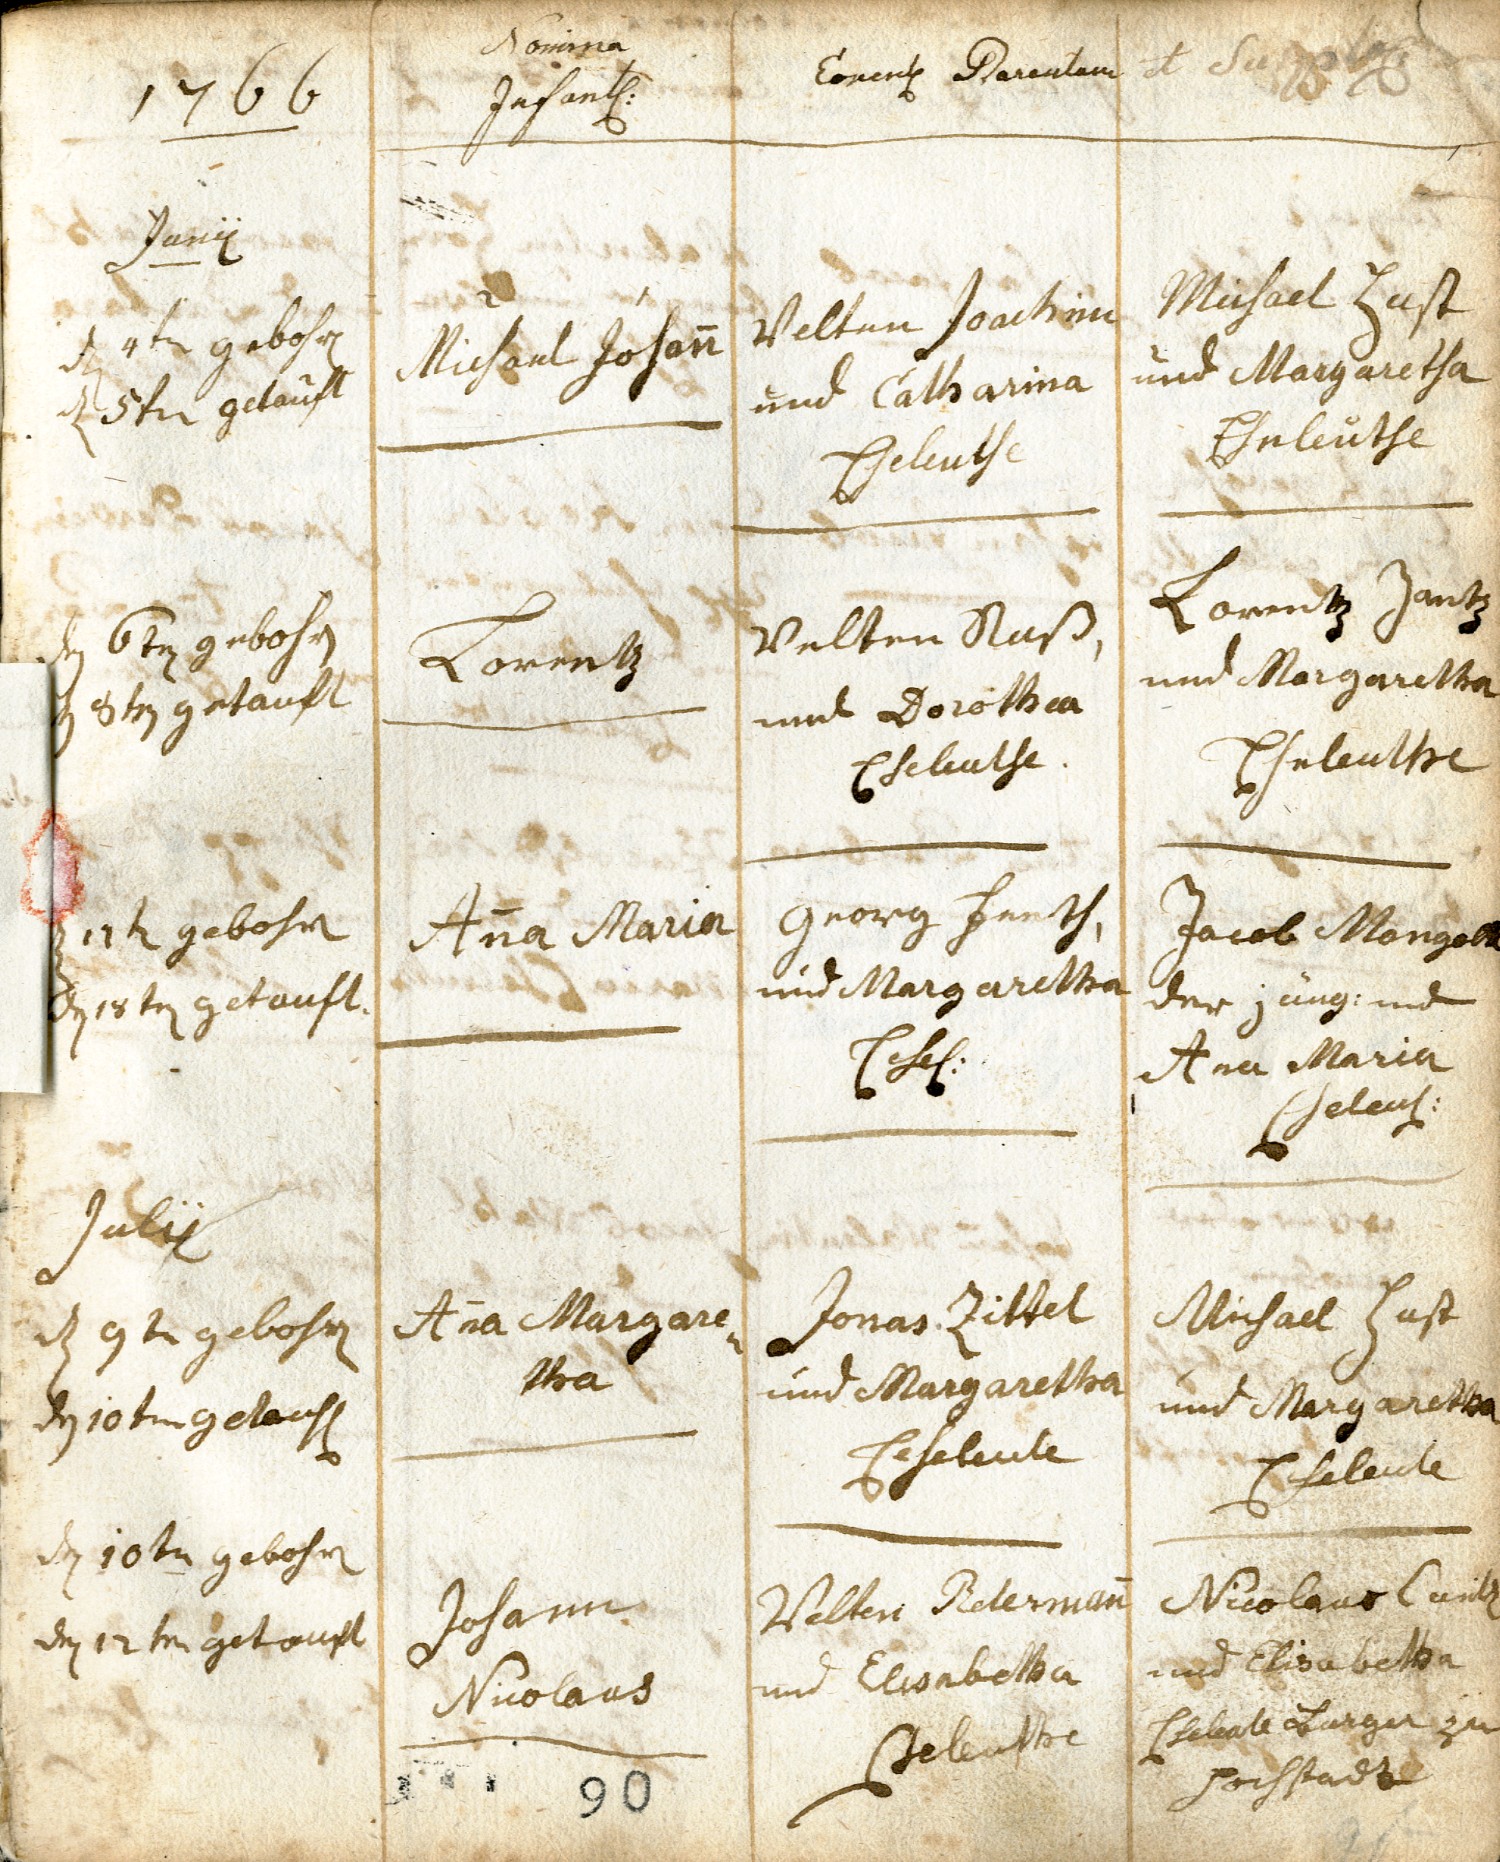 1766
Nomina
Infant:
Eorum Parentum et
Junij
d 4tn gebohrn
d 5tn getauft
Michael Johan̅
Velten Joachim
und Catharina
Eheleuthe
Michael Hust
und Margaretha
Eheleuthe
den 6ten gebohrn
8ten getauft
Lorentz
Velten Nuß,
und Dorothea
Eheleuthe.
Lorentz Jantz
und Margaretha
Eheleuthe
17tn gebohrn
den 18ten getauft.
An̅a Maria
Georg
und Margaretha
Ehel:
Jacob
der jüng: und
Ana Maria
Eheleut:
Julij
d 9tn gebohrn
den 10ten getauft
An̅a Margare
tha
Jonas Zittel
und Margaretha
Eheleute
Michael Hust
und Margaretha
Eheleute
den 10tn gebohrn
den 12ten getauft
Johann
Nicolaus
Velten Peterman̅
und Elisabetha
Eheleuthe
Nicolaus Cuntz
und Elisabetha
Eheleute Burger zu
Hochstadt
90